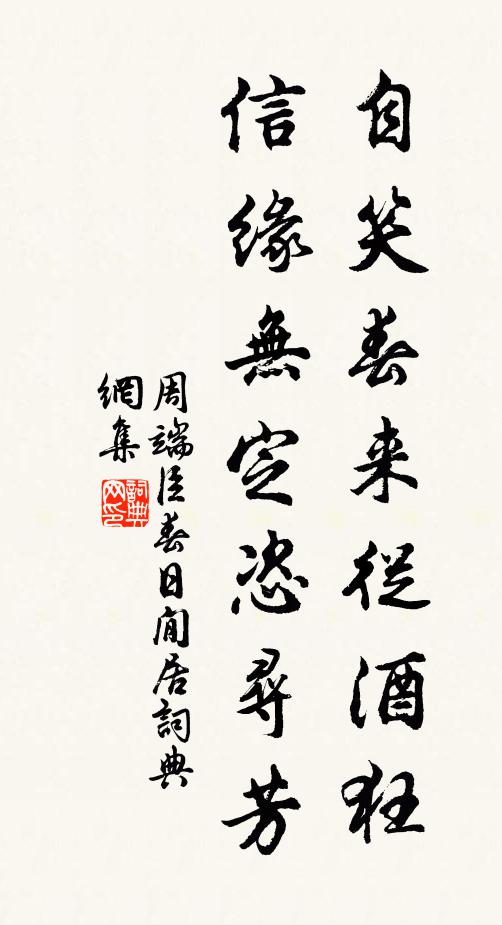 自笑春来從酒狂
信緣無定恣尋芳
周端臣春日閒居詞典
網集
詞典網印